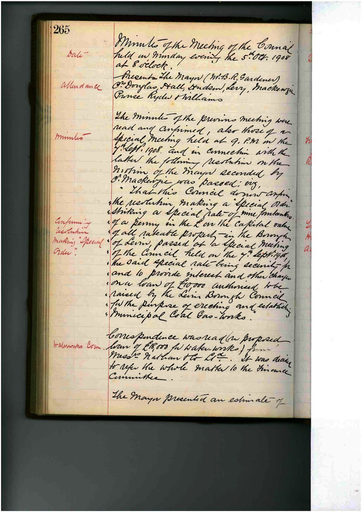 265
Minutes of the Meeting of the Council
Date
held on Monday evening the 5th Oct. 1908
at 8 o'clock.
Attendance
Present: The Mayor (Mr B. R. Gardener)
Crs Douglas, Hall, Hudson, Levy, Mackenzie
Prince Ryder & Williams
Minutes
The Minutes of the previous meeting were
read and confirmed, also those of a
Special Meeting held at 9. P.M on the
7th Sept. 1908 and in connection with the
latter the following resolution on the
Motion of the Mayor seconded by
Cr Mackenzie was passed; viz,
"That this Council do now confirm
Confirming
resolution
making "Special
Order"
the resolution making a Special Order
striking a special rate of nine
of a penny in the £ on the capital value
of all rateable property in the Borough
of Levin, passed at a Special Meeting
of the Council held on the 7th Sept 1908,
the said special rate being security for
and to provide interest and other charges
on a loan of authorised to be
raised by the Levin Borough Council
for the purpose of erecting and establishing
Municipal Coal Gas Works.
Waterworks Loan
Correspondence was read re proposed
loan of for Water works, from
Messrs Nathan & Co Ltd. It was decided
to refer the whole matter to the Finance
Committee.
The Mayor presented an estimate of